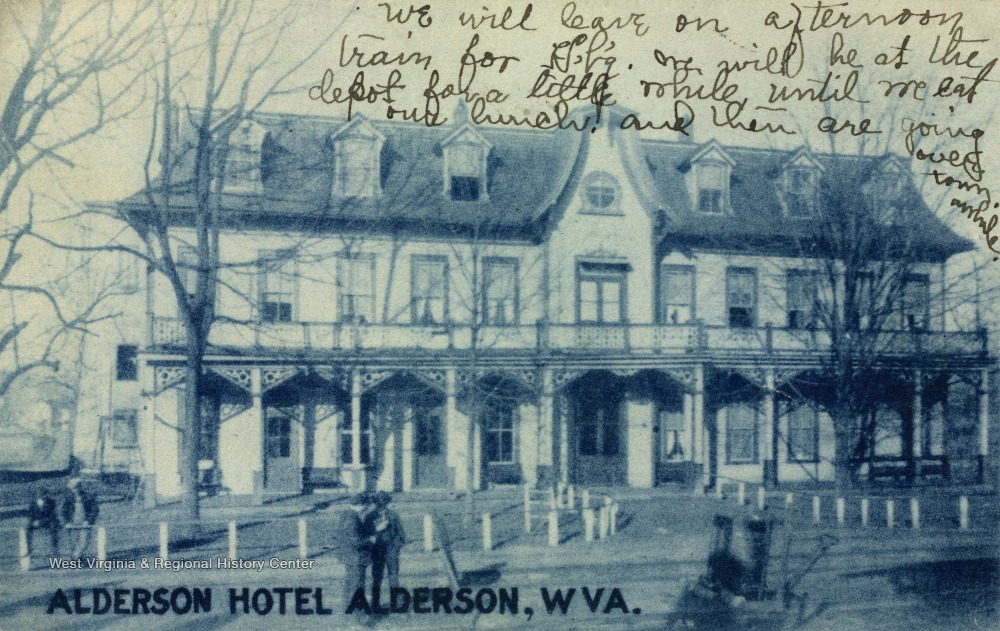 we will leave on afternoon
train for we will be at the
depot for a little while until we eat
our lunch. and then are going
over
town
awhile.
West Virginia & Regional History Center
ALDERSON HOTEL ALDERSON, W VA.